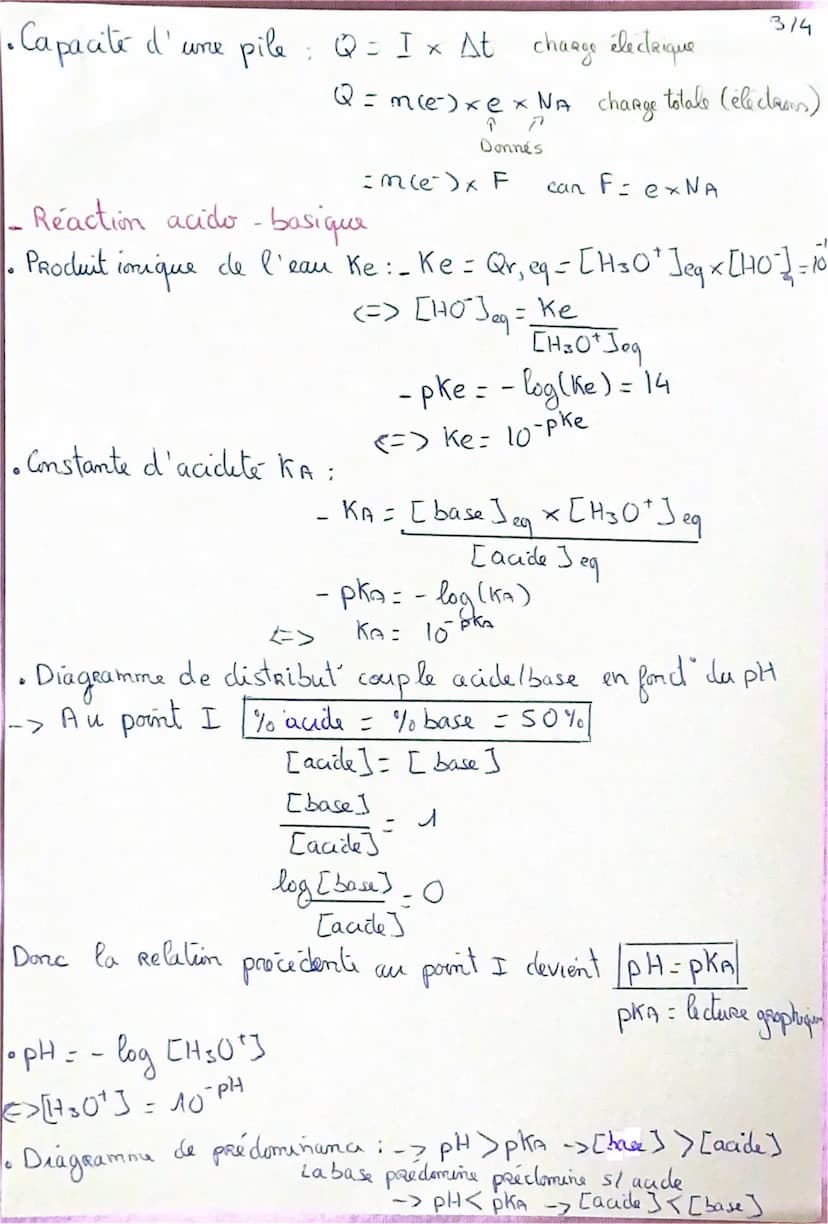 3/4
• Capacité d'une pile : Q = I × Δt charge électrique
Q = n(e-) × e × NA charge totale (électrons)
↑ ↗
Donnés
= n(e-) × F car F = e × NA
- Réaction acido-basique
• Produit ionique de l'eau Ke : - Ke = Qr,eq = [H3O+]eq × [HO-]eq = 10-1
<=> [HO-]eq = Ke / [H3O+]eq
- pKe = - log(Ke) = 14
<=> Ke = 10^-pKe
• Constante d'acidité KA :
- KA = [base]eq × [H3O+]eq / [acide]eq
- pKA = - log(KA)
<=> KA = 10^-pKA
• Diagramme de distribut° couple acide/base en fonct° du pH
-> Au point I % acide = % base = 50%
[acide] = [base]
[base] / [acide] = 1
log [base] / [acide] = 0
Donc la relation précédente au point I devient pH = pKA
pKA = lecture graphique
• pH = - log [H3O+]
<=> [H3O+] = 10^-pH
• Diagramme de prédominance : -> pH > pKA -> [base] > [acide]
La base prédomine prédomine s/ acide
-> pH < pKA -> [acide] < [base]